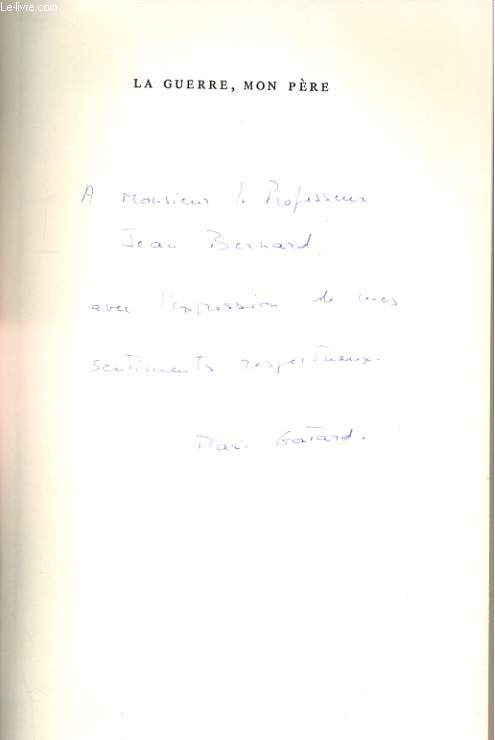 Le-livre.com
LA GUERRE, MON PÈRE
A Monsieur le Professeur
Jean Bernard,
avec l'expression de mes
sentiments respectueux.
Marie Gatard.